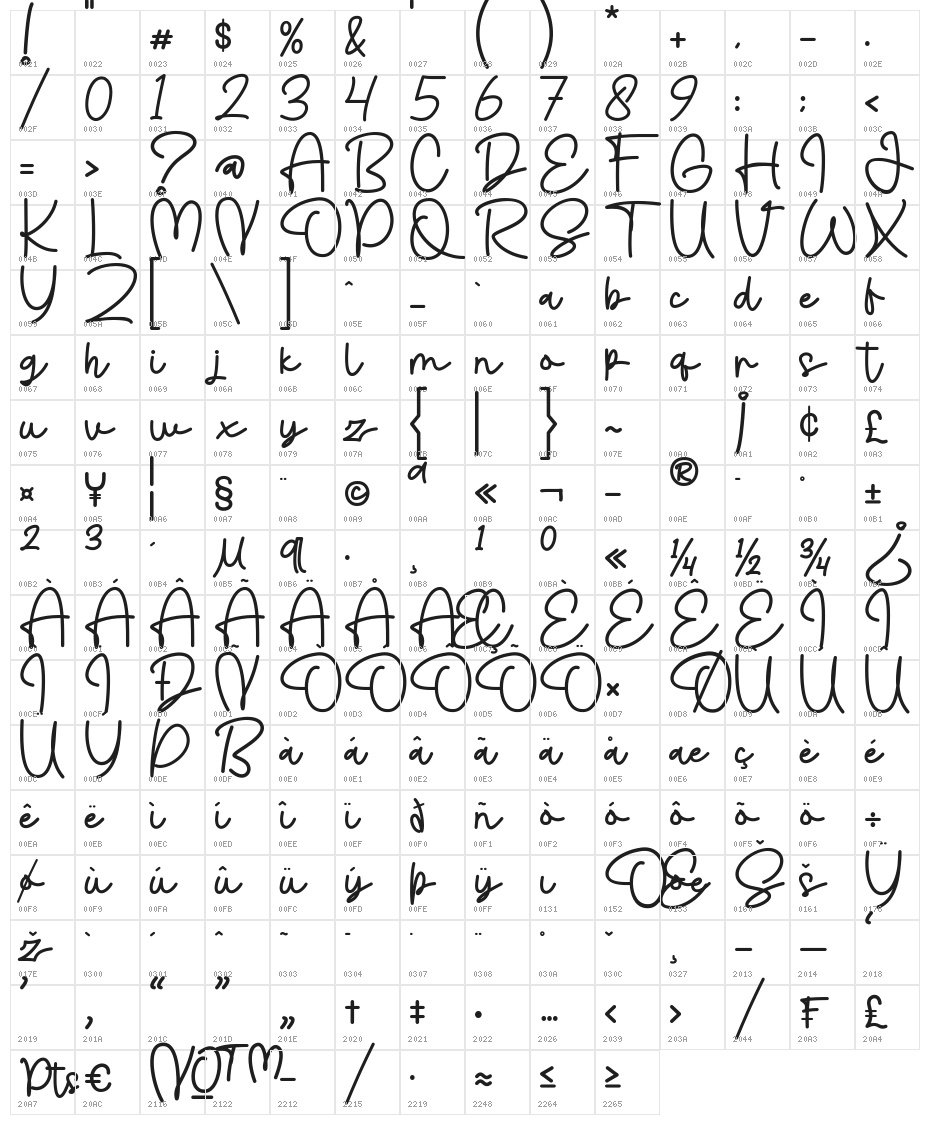 ! " # $ % & ' ( ) * + , - .
0021 0022 0023 0024 0025 0026 0027 0028 0029 002A 002B 002C 002D 002E
/ 0 1 2 3 4 5 6 7 8 9 : ; <
002F 0030 0031 0032 0033 0034 0035 0036 0037 0038 0039 003A 003B 003C
= > ? @ A B C D E F G H I J
003D 003E 003F 0040 0041 0042 0043 0044 0045 0046 0047 0048 0049 004A
K L M N O P Q R S T U V W X
004B 004C 004D 004E 004F 0050 0051 0052 0053 0054 0055 0056 0057 0058
Y Z [ \ ] ^ _ ` a b c d e f
0059 005A 005B 005C 005D 005E 005F 0060 0061 0062 0063 0064 0065 0066
g h i j k l m n o p q r s t
0067 0068 0069 006A 006B 006C 006D 006E 006F 0070 0071 0072 0073 0074
u v w x y z { | } ~ ¡ ¢ £
0075 0076 0077 0078 0079 007A 007B 007C 007D 007E 00A0 00A1 00A2 00A3
¤ ¥ ¦ § ¨ © ª « ¬ - ® ¯ ° ±
00A4 00A5 00A6 00A7 00A8 00A9 00AA 00AB 00AC 00AD 00AE 00AF 00B0 00B1
² ³ ´ µ ¶ · ¸ ¹ º « ¼ ½ ¾ ¿
00B2 00B3 00B4 00B5 00B6 00B7 00B8 00B9 00BA 00BB 00BC 00BD 00BE 00BF
À Á Â Ã Ä Å Æ Ç È É Ê Ë Ì Í
00C0 00C1 00C2 00C3 00C4 00C5 00C6 00C7 00C8 00C9 00CA 00CB 00CC 00CD
Î Ï Ð Ñ Ò Ó Ô Õ Ö × Ø Ù Ú Û
00CE 00CF 00D0 00D1 00D2 00D3 00D4 00D5 00D6 00D7 00D8 00D9 00DA 00DB
Ü Ý Þ ß à á â ã ä å æ ç è é
00DC 00DD 00DE 00DF 00E0 00E1 00E2 00E3 00E4 00E5 00E6 00E7 00E8 00E9
ê ë ì í î ï ð ñ ò ó ô õ ö ÷
00EA 00EB 00EC 00ED 00EE 00EF 00F0 00F1 00F2 00F3 00F4 00F5 00F6 00F7
ø ù ú û ü ý þ ÿ ı Œ œ Š š Ÿ
00F8 00F9 00FA 00FB 00FC 00FD 00FE 00FF 0131 0152 0153 0160 0161 0178
ž ̀ ́ ̂ ̃ ̄ ̇ ̈ ̊ ̌ ̧ – — ‘
017E 0300 0301 0302 0303 0304 0307 0308 030A 030C 0327 2013 2014 2018
’ ‚ “ ” „ † ‡ • … ‹ › ⁄ ₣ ₤
2019 201A 201C 201D 201E 2020 2021 2022 2026 2039 203A 2044 20A3 20A4
₧ € № ™ − ∕ ∙ ≈ ≤ ≥
20A7 20AC 2116 2122 2212 2215 2219 2248 2264 2265